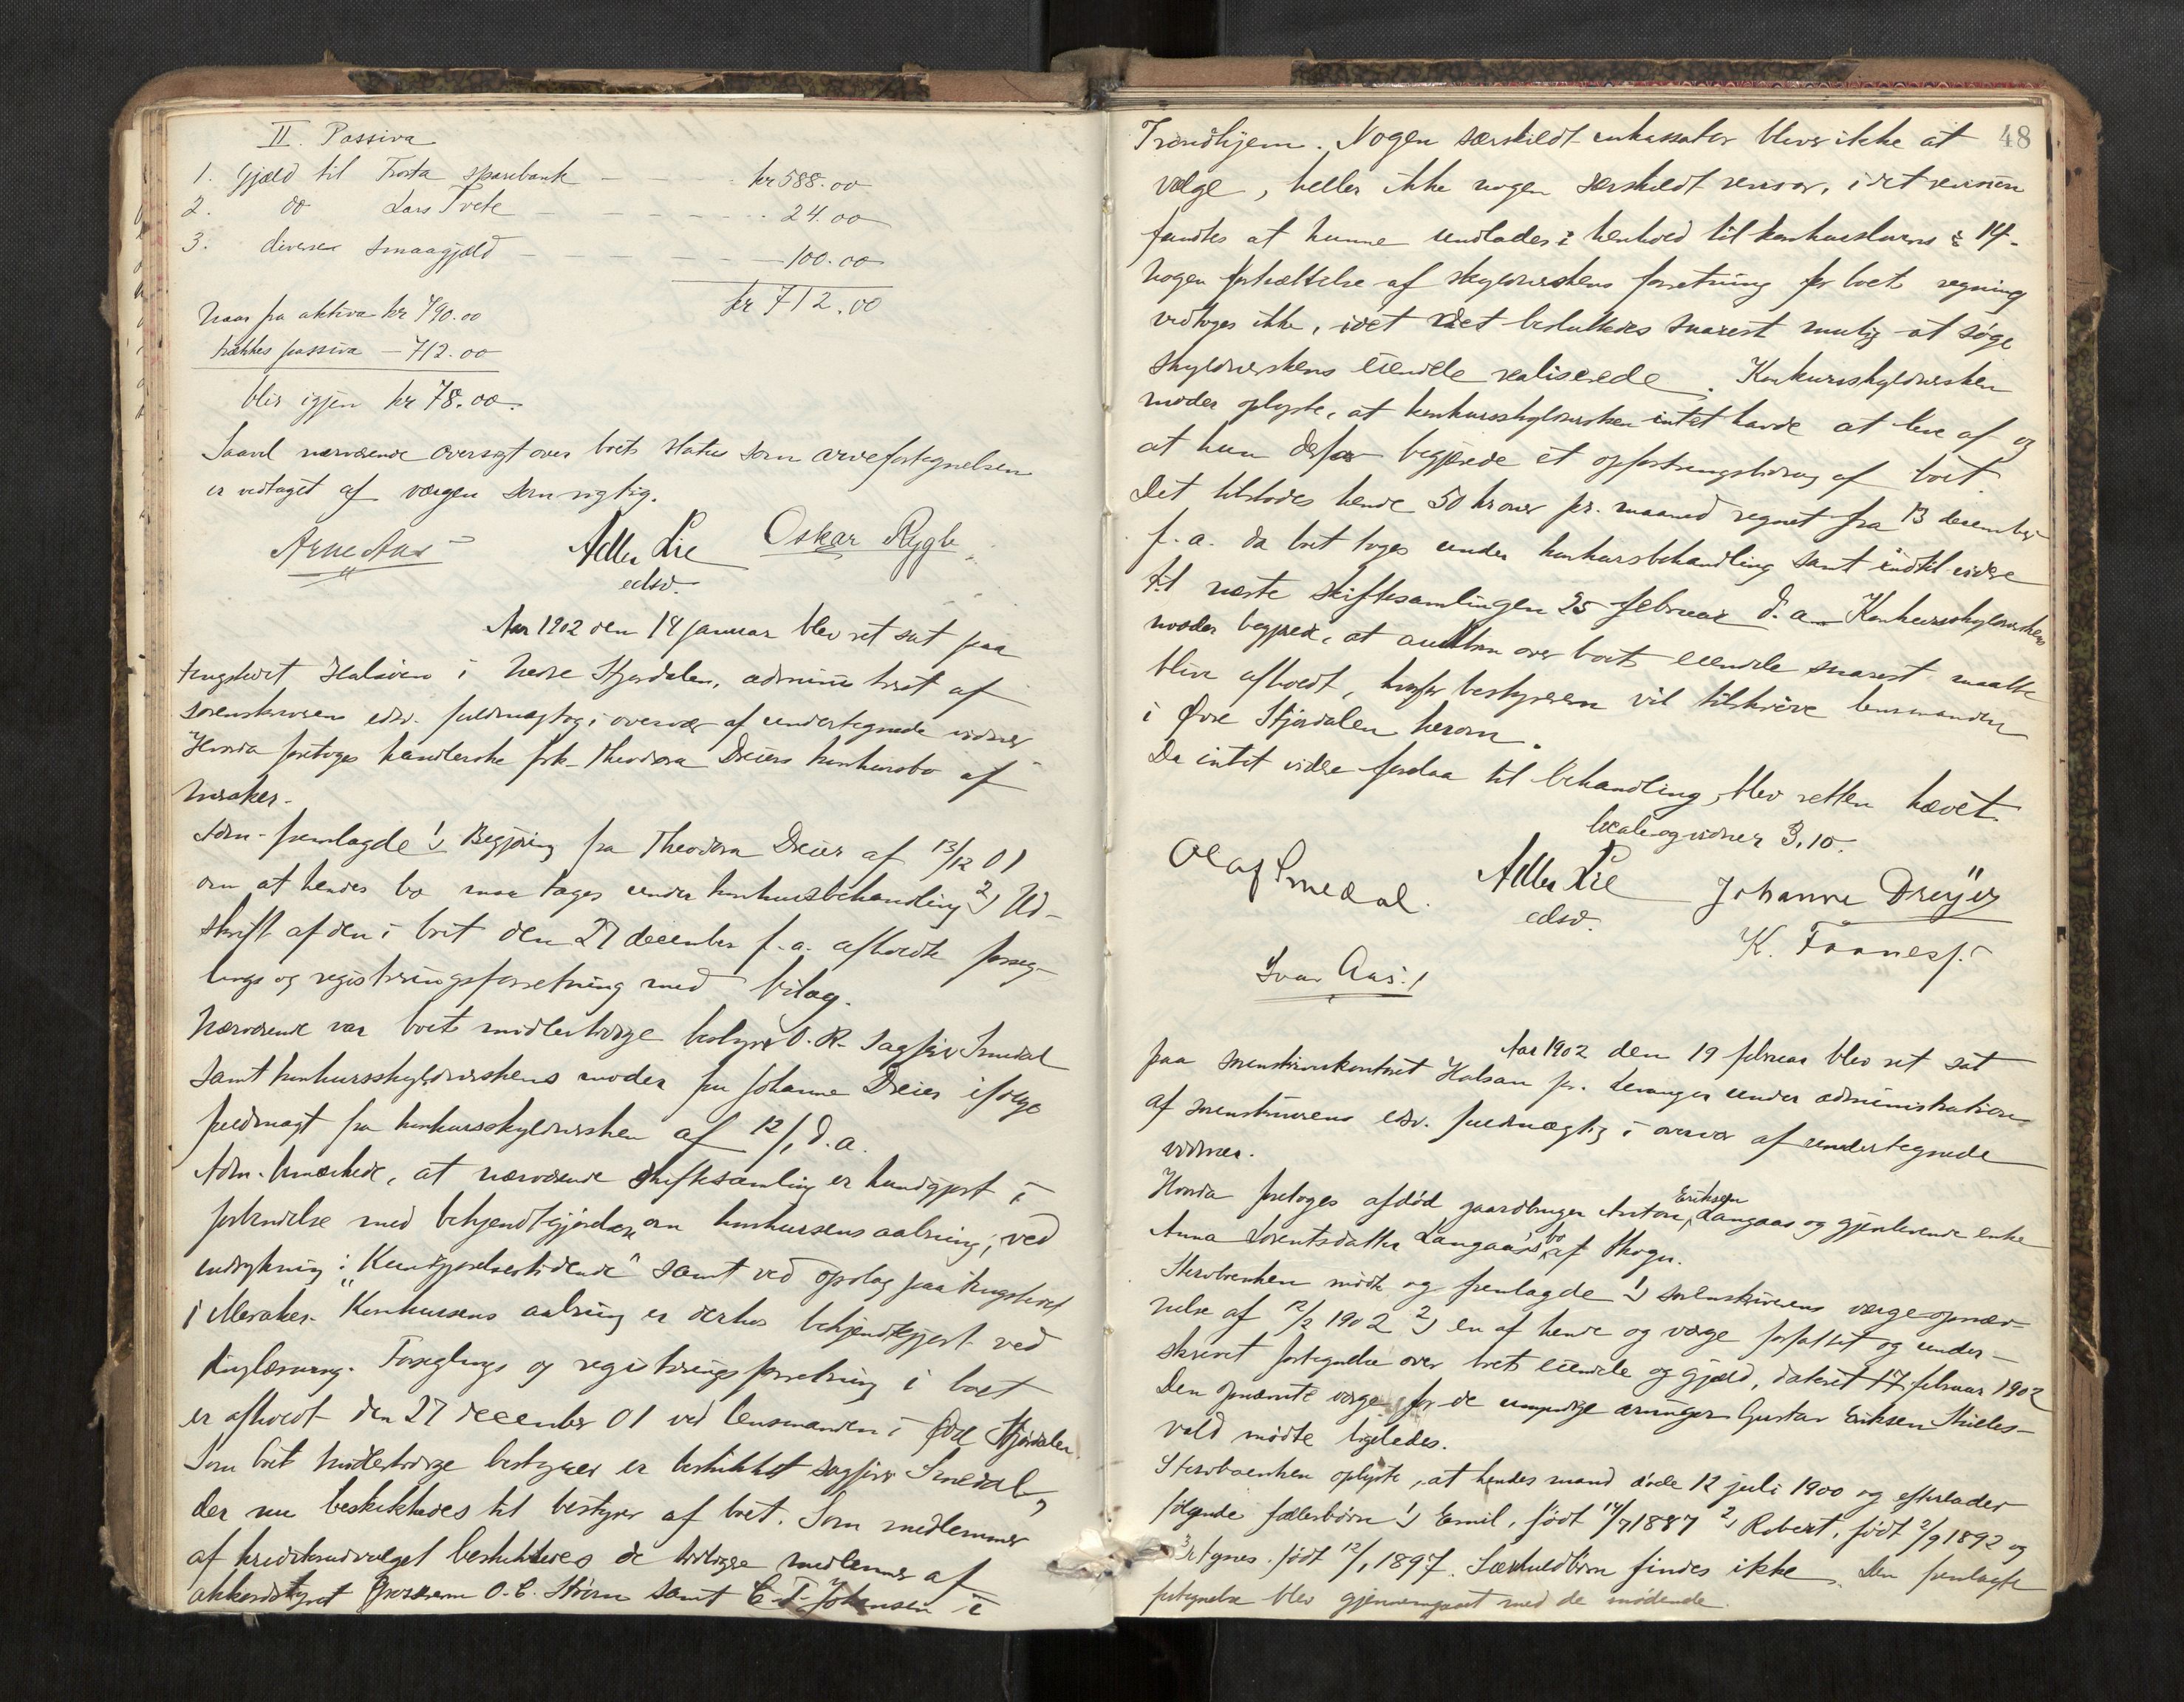 II. Passiva
1. Gjæld til Frosta sparebank — — — kr 588.00
2. do Lars Tvete — — — — 24.00
3. diverse smaagjæld — — — — 100.00
kr 712.00
Naar fra aktiva kr 790.00
trækkes passiva — 712.00
blir igjen kr 78.00.
Saavel nærværende oversigt over boets status som arvefortegnelsen
er vedtaget af værgen som rigtig.
Arne Aas Adler Lie Oskar Rygh
edsv.
Aar 1902 den 14 januar blev ret sat paa
tingstedet Halsøen i Nedre Stjørdalen, administreret af
sorenskriverens edsv. fuldmægtig i overvær af undertegnede vidner
Hvorda foretoges handlerske frk. Theodora Dreiers konkursbo af
Meraker.
Adm. fremlagde 1) Begjæring fra Theodora Dreier af 13/12 01
om at hendes bo maa tages under konkursbehandling 2) Ud-
skrift af den i boet den 27 december f. a. afholdte forseg-
lings og registreringsforretning med bilag.
Nærværende var boets midlertidige bestyrer O. R. Sagfører Smedal
samt konkursskyldnerskens moder fru Johanne Dreier ifølge
fuldmagt fra konkursskyldnersken af 12/1 d. a.
Adm. bemærkede, at nærværende skiftesamling er kundgjort i
forbindelse med bekjendtgjørelsen om konkursens aabning, ved
indrykning i "Kundgjørelsestidende" samt ved opslag paa tingstedet
i Meraker. Konkursens aabning er derhos bekjendtgjort ved
tinglæsning. Forseglings og registreringsforretning i boet
er afholdt den 27 december 01 ved lensmanden i Øvre Stjørdalen
Som boets midlertidige bestyrer er beskikket sagfører Smedal,
der nu beskikkedes til bestyrer af boet. Som medlemmer
af kreditorudvalget beskikkedes de tidligere medlemmer af
akkordstyret O. C. samt C. T. Johansen i
48
Trondhjem. Nogen særskildt inkassator blev ikke at
vælge, heller ikke nogen særskildt revisor, idet revision
fandtes at kunne undlades i henhold til konkurslovens § 14.
Nogen fortsættelse af skyldnerskens forretning for boets regning
vedtoges ikke, idet det besluttedes snarest mulig at søge
skyldnerskens eiendele realiserede. Konkursskyldnersken
moder oplyste, at konkursskyldnersken intet havde at leve af og
at hun derfor begjærede et opfostringsbidrag af boet.
Det tilstodes hende 50 kroner pr. maaned regnet fra 13 december
f. a. da boet toges under konkursbehandling samt indtil videre
til næste skiftesamlingen 25 februar d. a. Konkursskyldnerskens
moder begjærede, at auktion over boets eiendele snarest maatte
blive afholdt, hvorfor bestyreren vil tilskrive lensmanden
i Øvre Stjørdalen herom.
Da intet videre forelaa til behandling, blev retten hævet
lokale og vidner 3,10.
Olaf Smedal. Adler Lie Johanne Dreÿer
edsv.
K. Faanes f.
Ivar Aas.
Aar 1902 den 19 februar blev ret sat
paa sorenskriverkontoret Halsan pr. Levanger under administration
af sorenskriverens edsv. fuldmægtig i overvær af undertegnede
vidner.
Hvorda foretoges afdød gaardbruger Anton Eriksen Langaas og gjenlevende enke
Anna Lorentsdatter Langaas's bo af Skogn.
Stervboenken mødte og fremlagde 1) sorenskriverens værgeopnæv-
nelse af 12/2 1902 2) en af hende og værge forfattet og under-
skrevet fortegnelse over boets eiendele og gjæld, dateret 17 februar 1902
Den opnævnte værge for de umyndige arvinger Gustav Eriksen Skieles-
vold mødte ligeledes.
Stervboenken oplyste, at hendes mand døde 12 juli 1900 og efterlader
følgende fællesbørn 1) Emil, født 14/7 1887 2) Robert, født 2/9 1892 og
3) Agnes. født 12/1 1897. Særkuldbørn findes ikke. Den fremlagte
fortegnelse blev gjennemgaaet med de mødende.